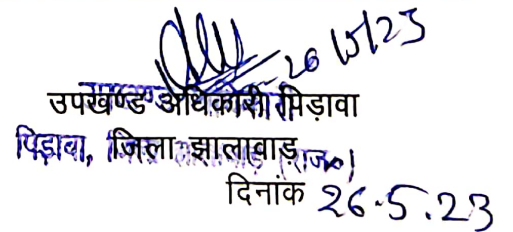 26/5/23
उपखण्ड अधिकारी पिड़ावा
पिड़ावा, जिला झालावाड़ (राज०)
दिनांक 26.5.23